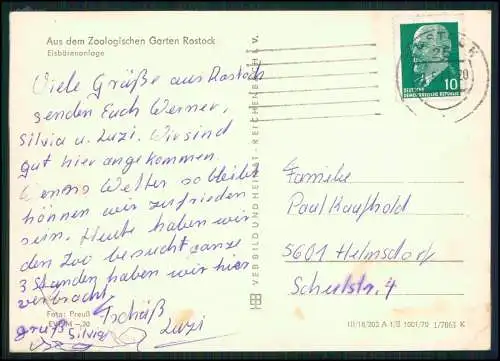 Aus dem Zoologischen Garten Rostock
Eisbärenanlage
Viele Grüße aus Rostock
senden Euch Werner,
Silvia u. Luzi. Wir sind
gut hier angekommen.
Wenns Wetter so bleibt
können wir zufrieden
sein. Heute haben wir
den Zoo besucht ganze
3 Stunden haben wir hier
verbracht.
Tschüß
Luzi
gruß Silvia
Foto: Preuß
VEB BILD UND HEIMAT · REICHENBACH I. V.
10
DEUTSCHE
DEMOKRATISCHE REPUBLIK
Familie
Paul Kaufhold
5601 Helmsdorf
Schulstr. 4
III/18/202 A 1/B 1001/70 1/7063 K